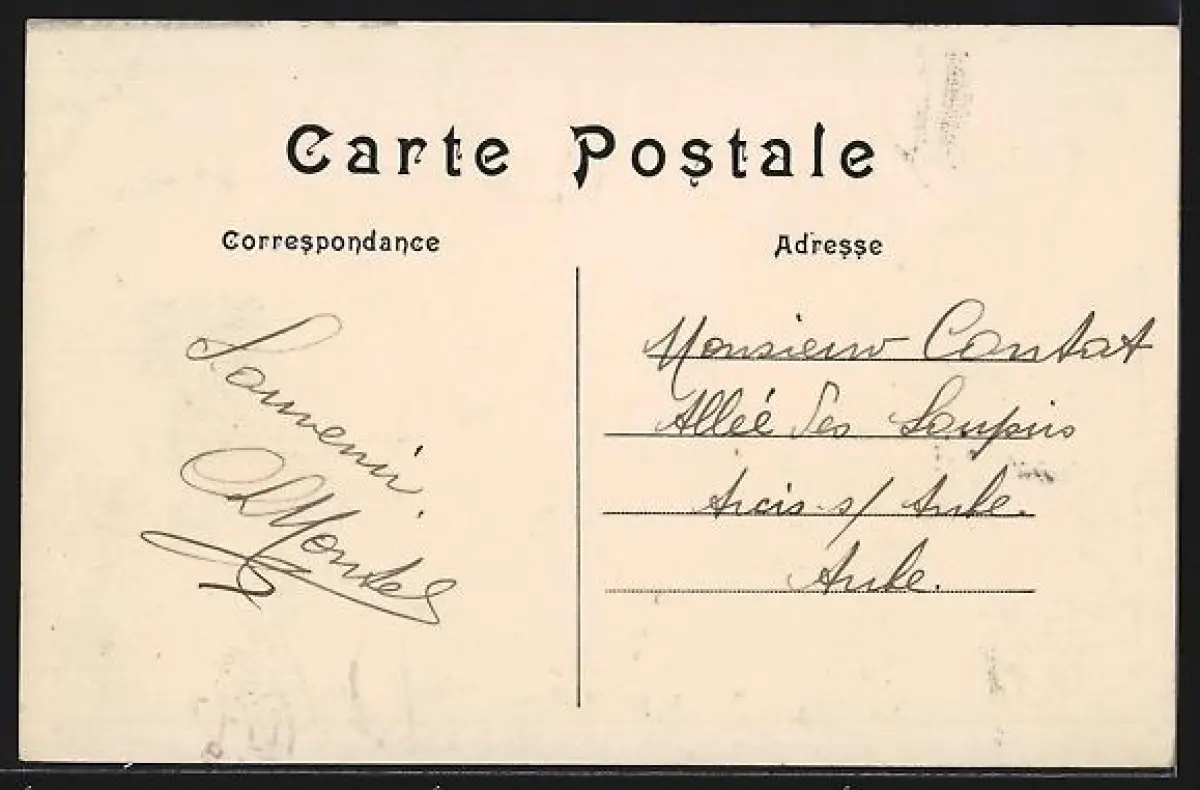 Carte Postale
Correspondance
Adresse
Souvenir.
Monsieur Contat
Allée des Soupirs
Arcis s/ Aube.
Aube.